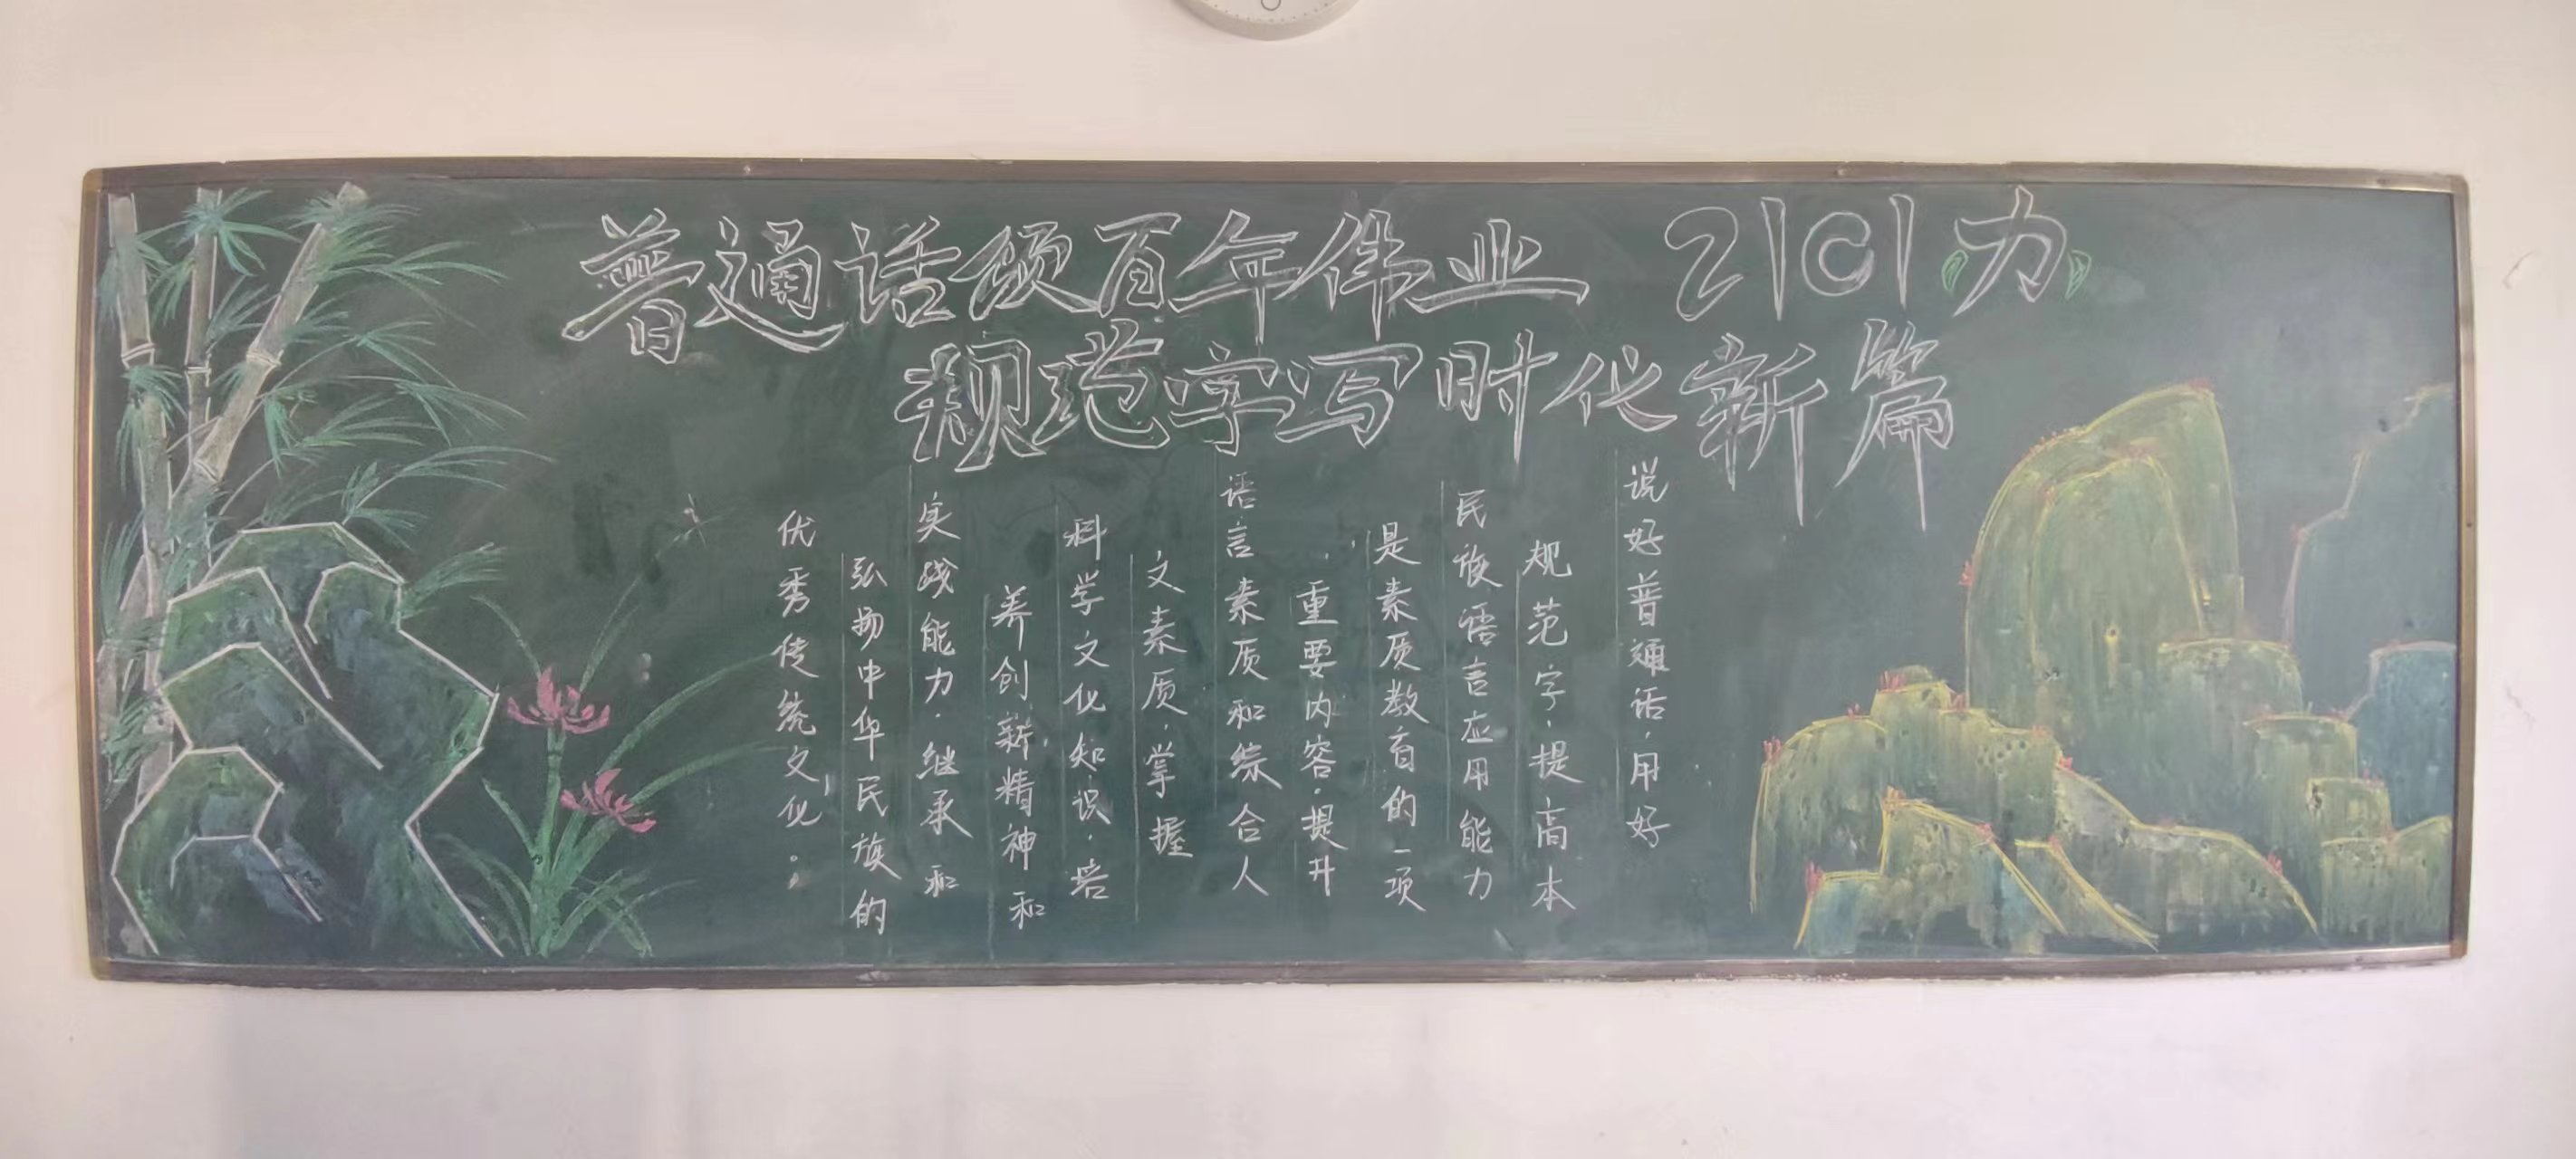 普通话颂百年伟业
2101办
规范字写时代新篇
说好普通话·用好
规范字·提高本
民族语言应用能力
是素质教育的一项
重要内容·提升
语言素质和综合人
文素质·掌握
科学文化知识·培
养创新精神和
实践能力·继承和
弘扬中华民族的
优秀传统文化。